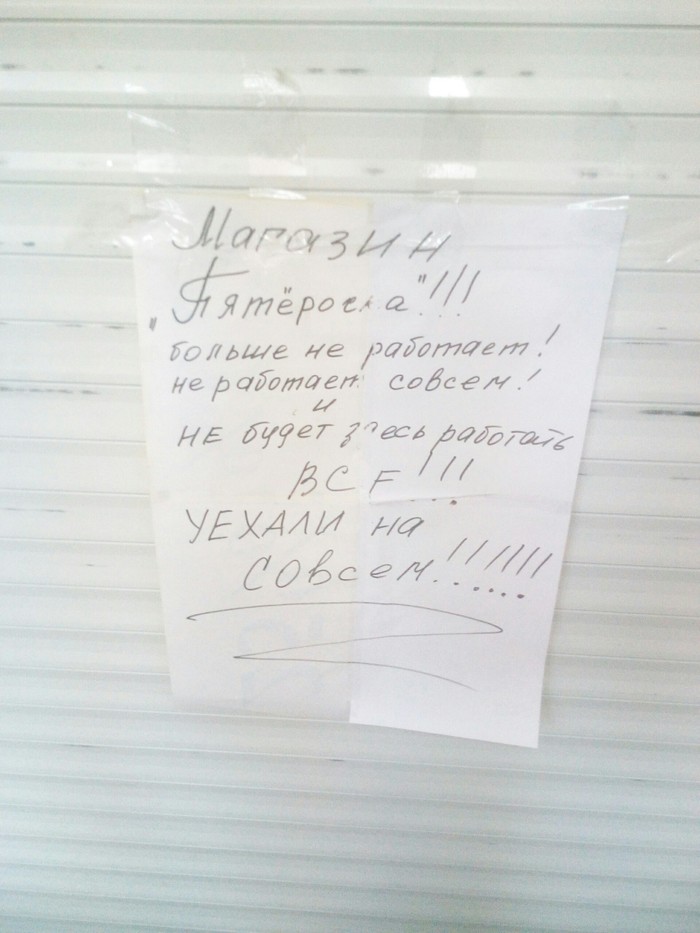 Магазин
„Пятёрочка"!!!
больше не работает!
не работает совсем!
и
НЕ будет здесь работать
ВСЕ!!!
УЕХАЛИ на
СОВСЕМ!!!!!!!